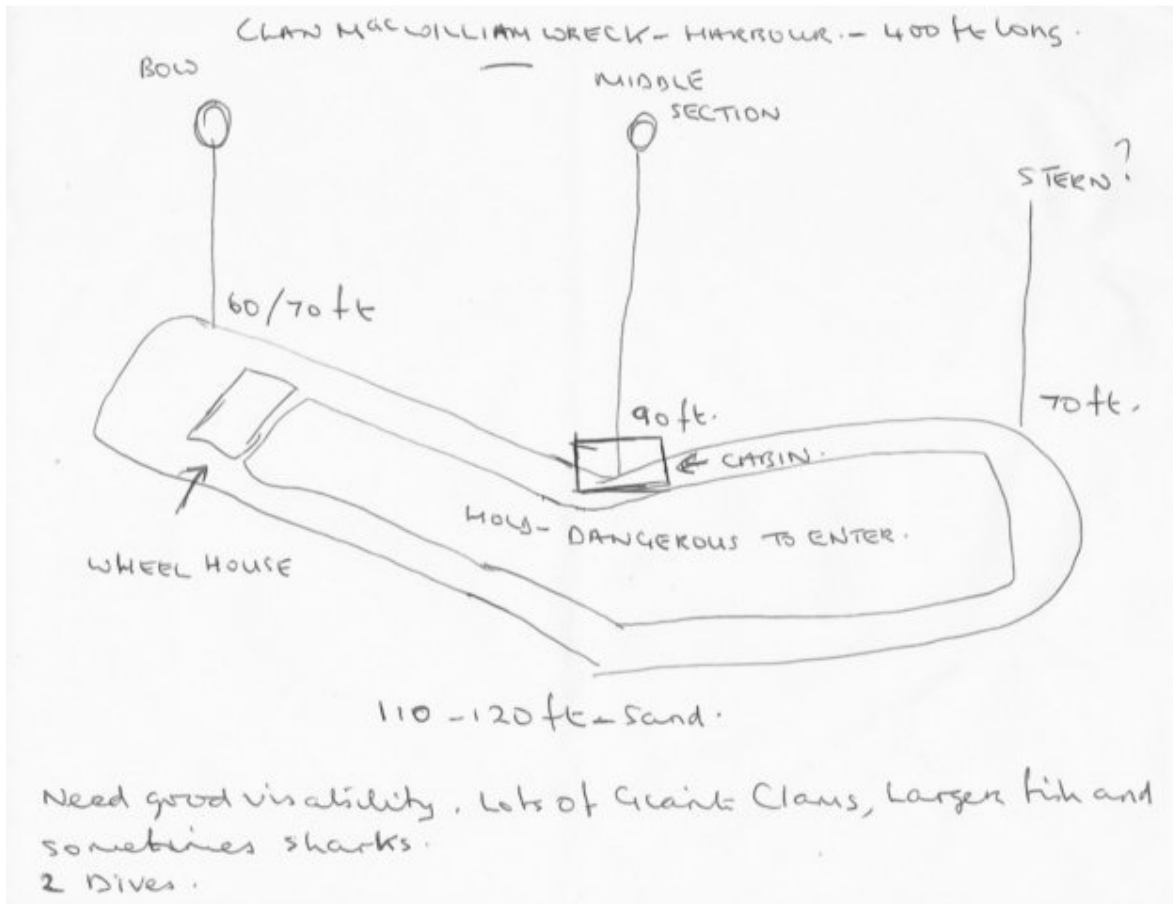 CLAN MacWILLIAM WRECK - HARBOUR. - 400 ft long.
BOW
MIDDLE
SECTION
STERN?
60/70 ft
90 ft.
70 ft.
← CABIN.
HOLD - DANGEROUS TO ENTER.
WHEEL HOUSE
110 - 120 ft - Sand.
Need good visability. Lots of Giant Clams, Larger fish and
sometimes sharks.
2 Dives.